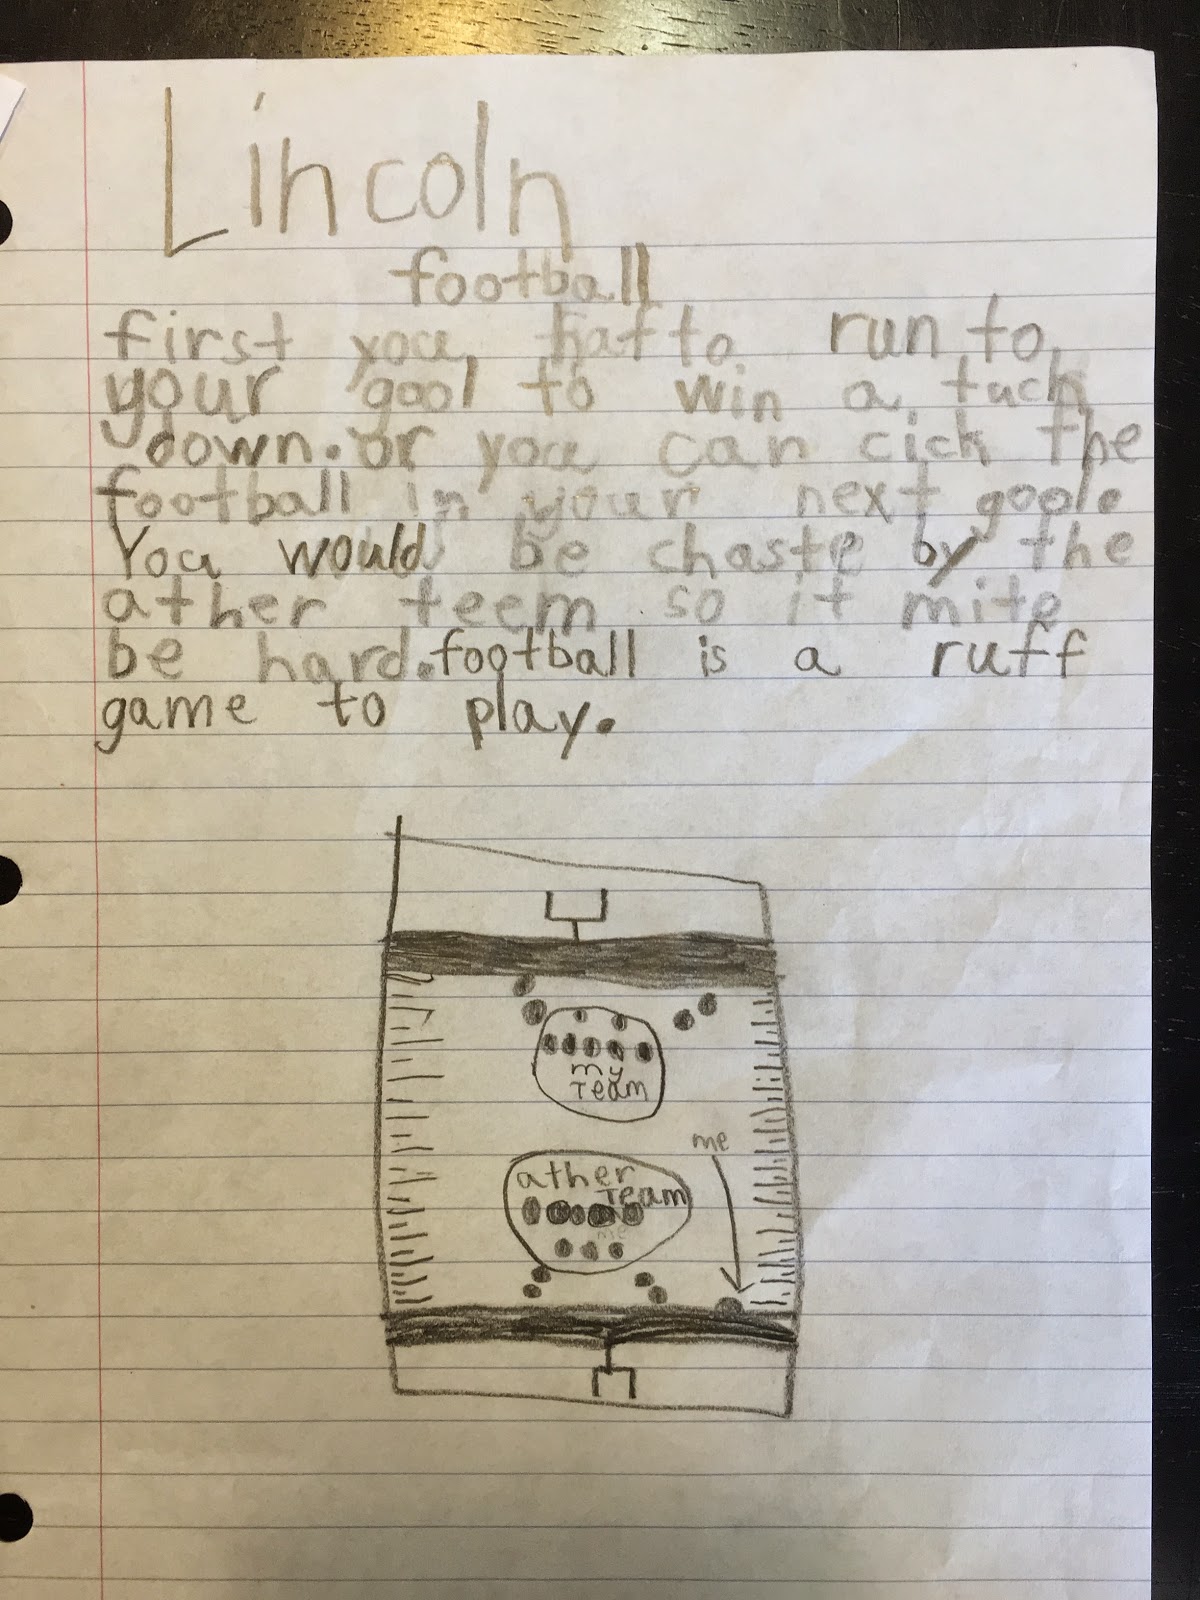 Lincoln
football
first you haf to run to
your gool to win a tuch
down. or you can cick the
football in your next goole
You would be chaste by the
ather teem so it mite
be hard. football is a ruff
game to play.
my
TEAM
me
ather
TEAM
me